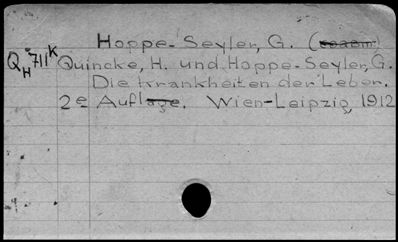 Hoppe-Seyler, G.
QH 711K Quincke, H. und Hoppe-Seyler, G.
Die Krankheiten der Leber.
2e Auflage. Wien-Leipzig, 1912